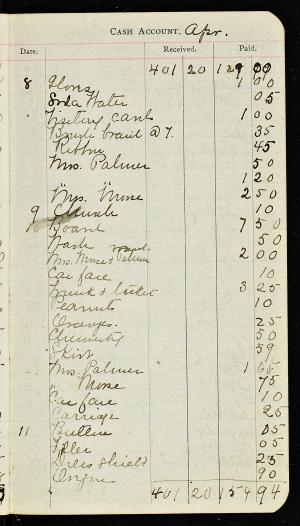 CASH ACCOUNT. Apr.
Date. Received. Paid.
401 20 129 00
8 Gloves 1 00
Soda Water 05
Visiting cards 1 00
Braid @ 7. 35
Ribbon 45
Mrs. Palmer 50
1 20
" Mrs. Morse 2 50
9 Church 10
Board 7 50
Wash 50
Mrs. Morse & Palmer 2 00
Car fare 10
Trunk & ticket 3 25
Peanuts 10
Oranges. 25
Chemistry 50
Skirt 59
Mrs. Palmer 1 65
" Morse 75
Car fare 10
Carriage 25
11 05
05
Dress shield 25
90
401 20 154 94